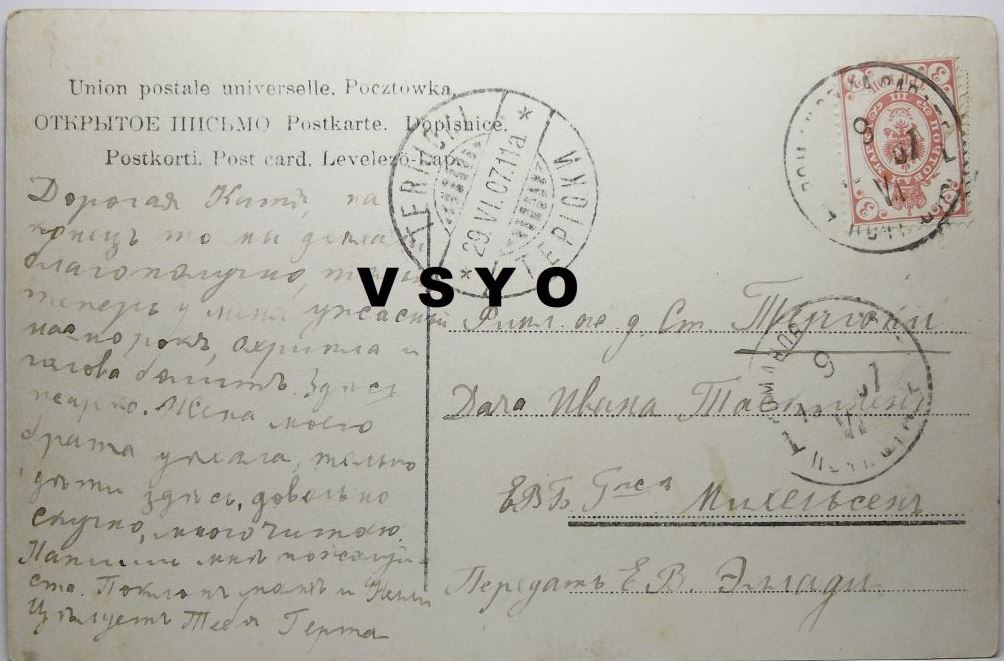 Union postale universelle. Pocztówka.
ОТКРЫТОЕ ПИСЬМО Postkarte. Dopisnice.
Postkorti. Post card. Levelező-Lap.
TERIJOKI
29.VI.07.11a.
ТЕРІОКИ
8
VI
07
Дорогая Китти, на
конецъ то мы доехали
благополучно, только
теперь у меня ужасный
насморкъ, охрипла и
голова болитъ. Здесь
жарко. Жена моего
брата уѣхала, только
дѣти здѣсь, довольно
скучно, много читаю.
Напиши мнѣ пожалуй-
ста. Поклонъ мамѣ и
Цѣлуетъ Тебя Герта
VSYO
Финл. ж. д. Ст. Тюрсевя
Дача Ивана
9
VI
07
ЕВБ Г-жѣ Михельсенъ
Передать Е. В. Эллади